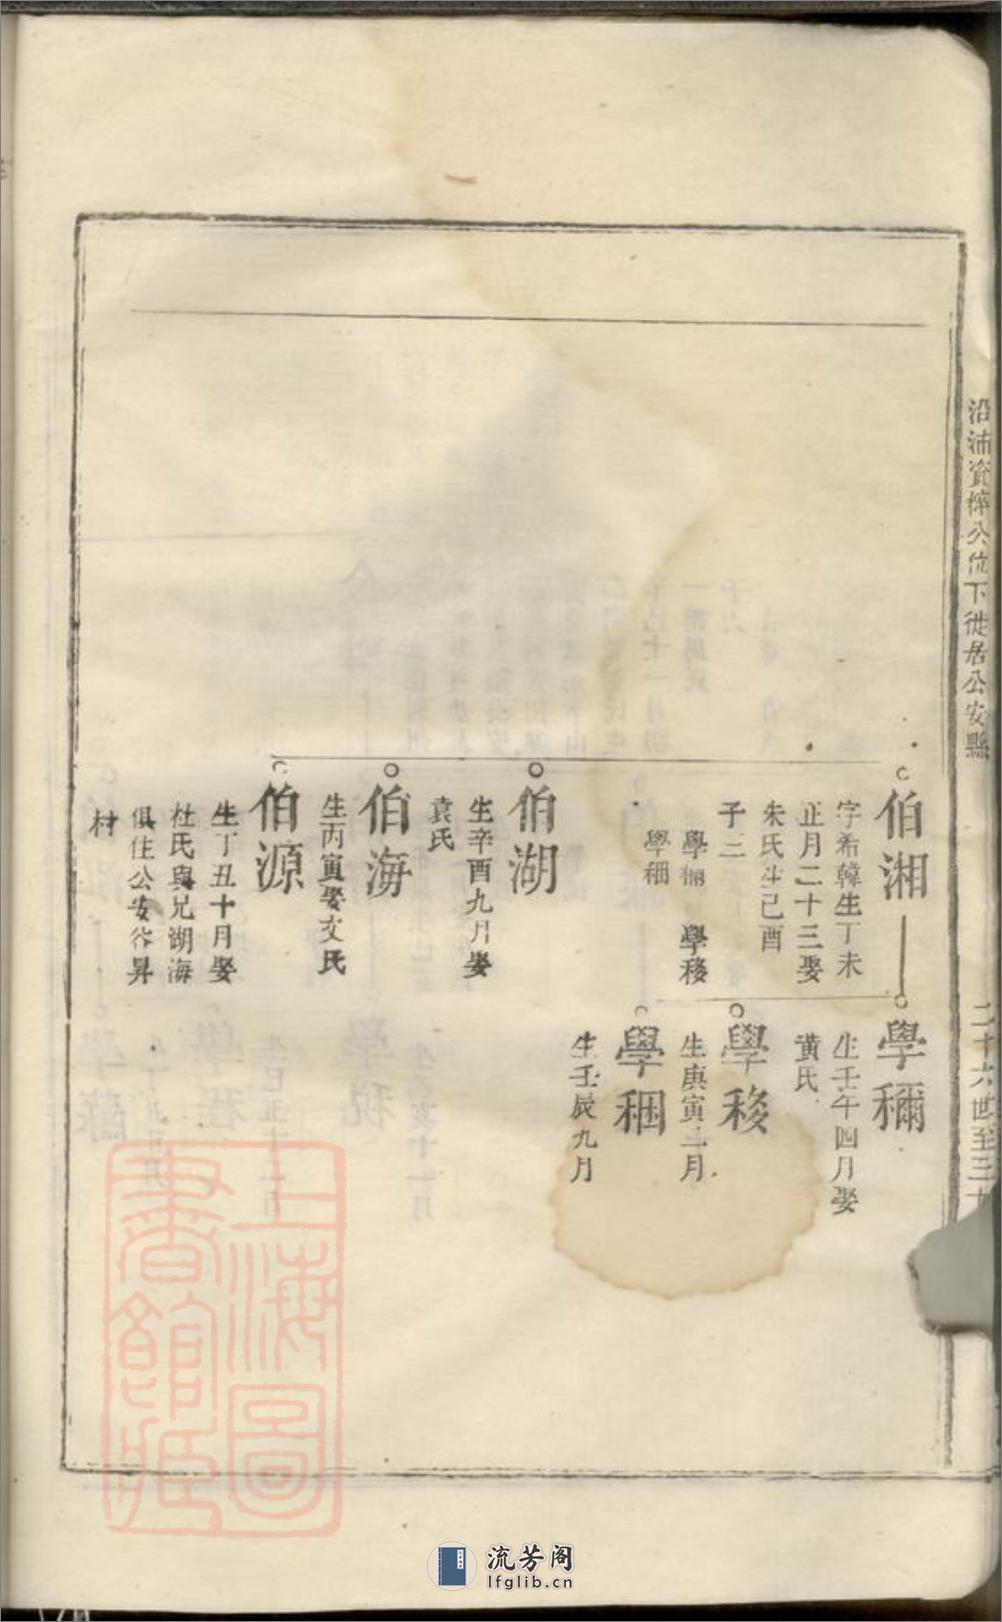 沿沛資梓公位下徙居公安縣
二十六世至三十
伯湘
字希韓生丁未
正月二十三娶
朱氏生己酉
子三
學穪 學移
學稛
學穪
生壬午四月娶
黃氏
學移
生庚寅二月
學稛
生壬辰九月
伯湖
生辛酉九月娶
袁氏
伯海
生丙寅娶文氏
伯源
生丁丑十月娶
杜氏與兄湖海
俱住公安谷昇
村
上海圖
書館藏
流芳阁
lfglib.cn